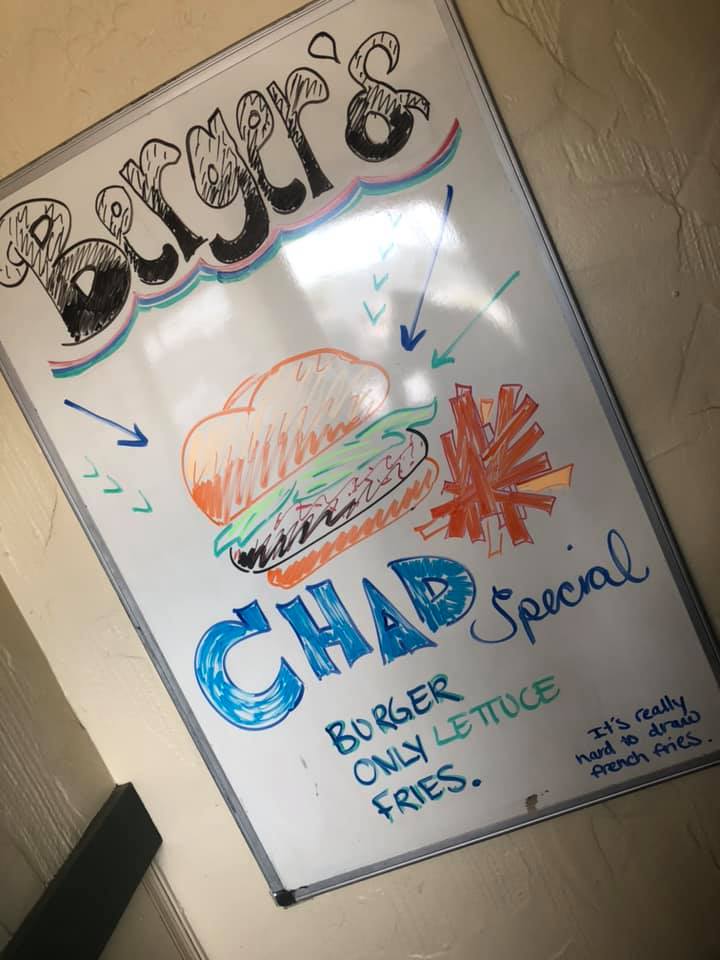 Berger's
CHAD Special
BURGER
ONLY LETTUCE
FRIES.
It's really
hard to draw
french fries.